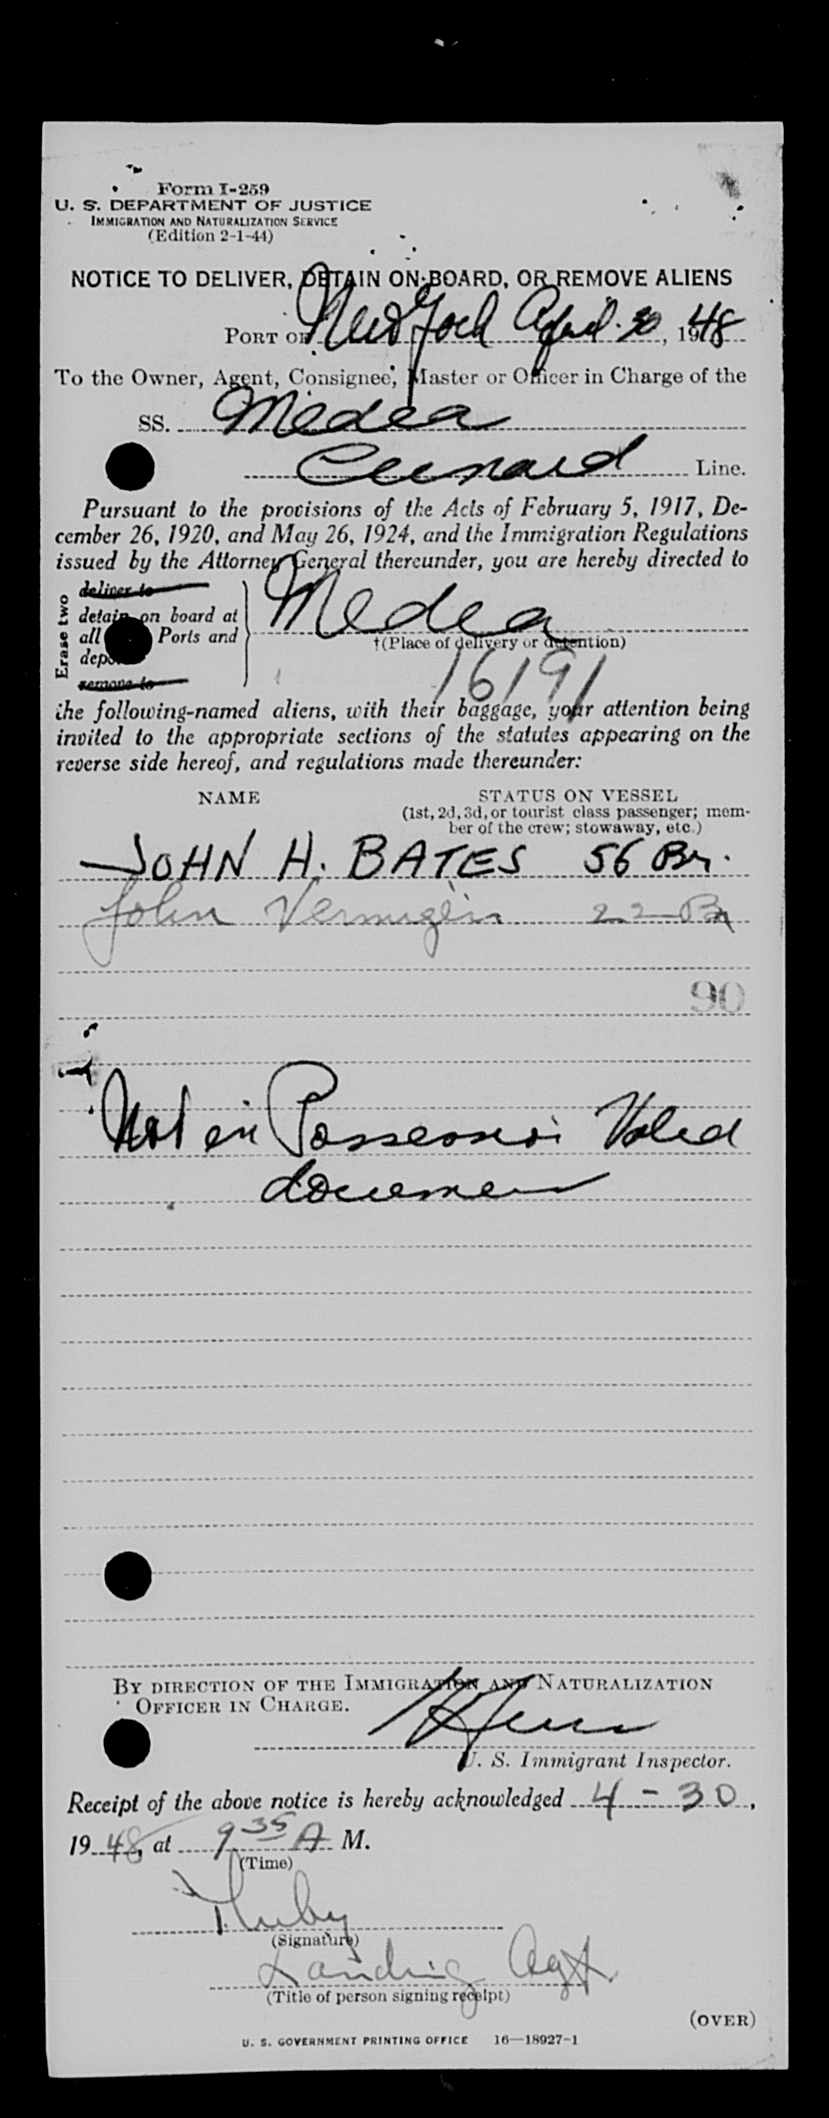 Form I-259
U. S. DEPARTMENT OF JUSTICE
IMMIGRATION AND NATURALIZATION SERVICE
(Edition 2-1-44)
NOTICE TO DELIVER, DETAIN ON BOARD, OR REMOVE ALIENS
PORT OF New York April 30, 1948
To the Owner, Agent, Consignee, Master or Officer in Charge of the
SS. Medea
Cunard Line.
Pursuant to the provisions of the Acts of February 5, 1917, De-
cember 26, 1920, and May 26, 1924, and the Immigration Regulations
issued by the Attorney General thereunder, you are hereby directed to
Erase two
deliver to
detain on board at
all Ports and
remove to
Medea
†(Place of delivery or detention)
16191
the following-named aliens, with their baggage, your attention being
invited to the appropriate sections of the statutes appearing on the
reverse side hereof, and regulations made thereunder:
NAME STATUS ON VESSEL
(1st, 2d, 3d, or tourist class passenger; mem-
ber of the crew; stowaway, etc.)
JOHN H. BATES 56 Br.
John 22 Br
90
Not in Possession Valid
documen
BY DIRECTION OF THE IMMIGRATION AND NATURALIZATION
OFFICER IN CHARGE.
U. S. Immigrant Inspector.
Receipt of the above notice is hereby acknowledged 4-30,
1948, at 9 35 A M.
(Time)
(Signature)
Landing Agt
(Title of person signing receipt)
(OVER)
U. S. GOVERNMENT PRINTING OFFICE 16—18927-1